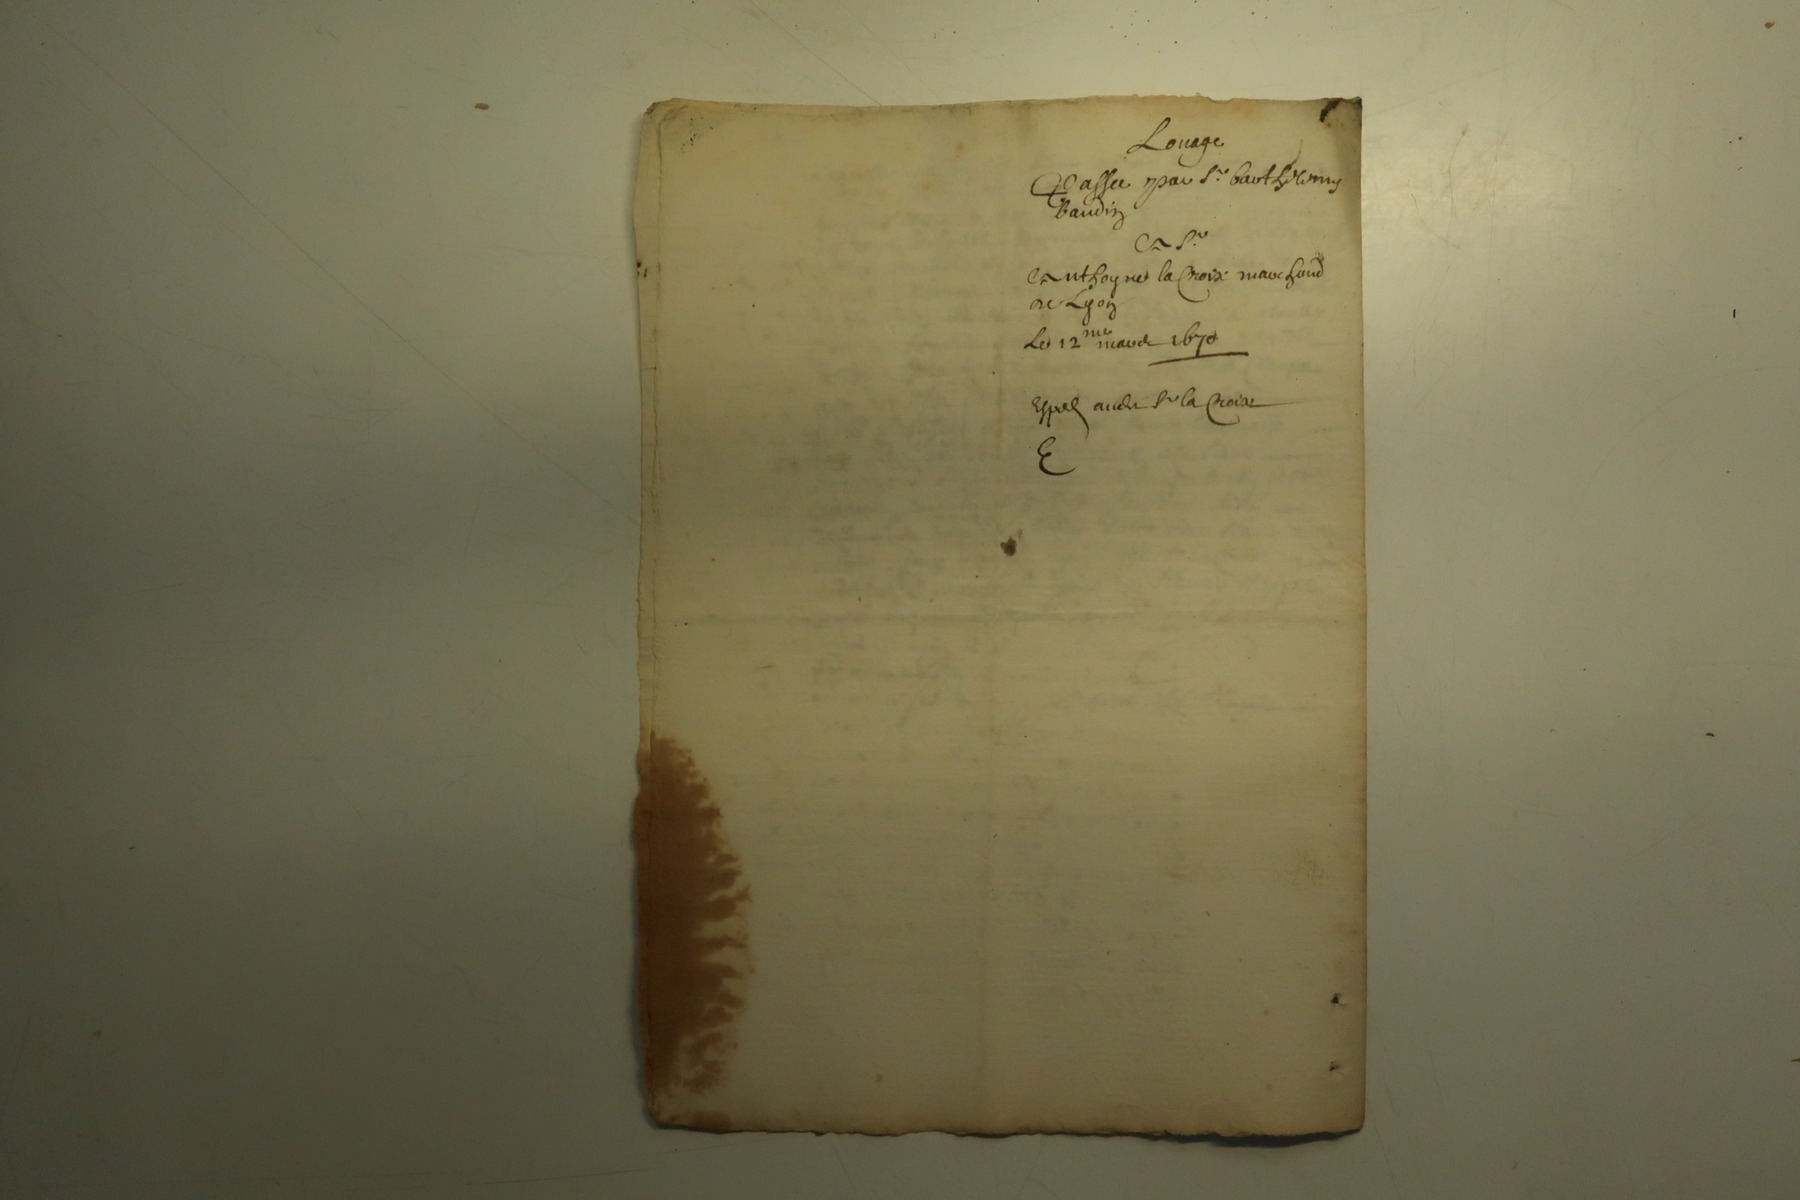 Louage
Passé par Sr. barthelemy
Baudin
A Sr.
Anthoyne la Croix marchand
de Lyon
Le 12me mars 1670
audit Sr la Croix
E